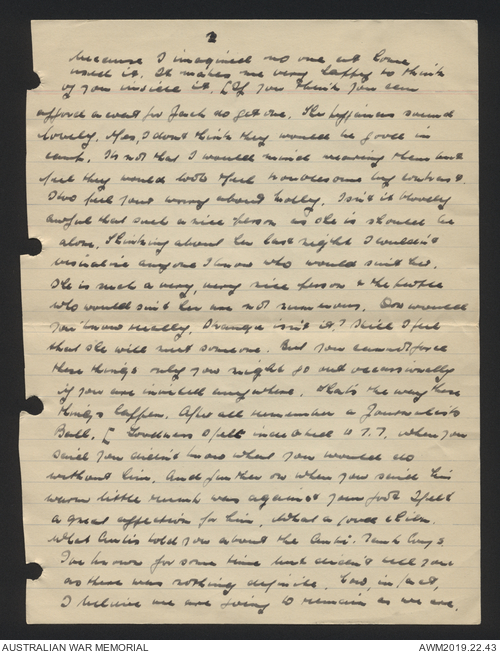 2
because I imagined no one at home
used it. It makes me very happy to think
of you inside it. [If you think you can
afford a coat for Jack do get one. The pyjamas sound
lovely. Yes, I don't think they would be good in
camp. It's not that I would mind wearing them but
feel they would both feel troublesome by contrast.
I too feel your worry about Molly. Isn't it bloody
awful that such a nice person as she is should be
alone. Thinking about her last night I wouldn't
visualise anyone I know who would suit her.
She is such a very, very nice person & the people
who would suit her are not numerous. Don would
you know really, strange isn't it? Still I feel
that she will meet someone. But you cannot force
these things only you might go out occasionally
if you are invited anywhere. That's the way these
things happen. After all remember a Journalists
Ball. [ Loveliness I felt indebted to T.T. when you
said you didn't know what you would do
without him. And further on when you said his
warm little rump was against your foot I felt
a great affection for him. What a good
What told you about the Anti-Tank Guys
I've known for some time but didn't tell you
as there was nothing definite. And, in fact,
I believe we are going to remain as we are.
AUSTRALIAN WAR MEMORIAL
AWM2019.22.43